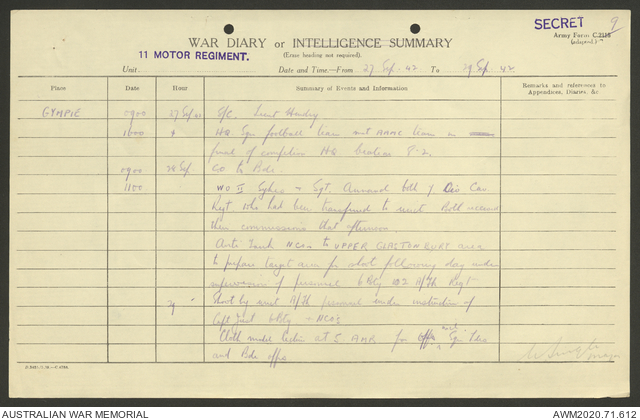 SECRET
9
Army Form C.2118
(adapted)
WAR DIARY or INTELLIGENCE SUMMARY
(Erase heading not required).
11 MOTOR REGIMENT.
Unit
Date and Time—From 27 Sep. 42 To 29 Sep. 42
Place Date Hour Summary of Events and Information Remarks and references to Appendices, Diaries, &c
GYMPIE 0900 27 Sep 42 S/C. Lieut
1600 HQ Sqn football team met AAMC team in
final of competition HQ beaten 8-2.
0900 28 Sep. CO to Bde.
1100 WO II Sykes + Sgt. both of Div Cav
Regt. who had been transferred to unit. Both received
their commissions that afternoon.
Anti Tank NCOs to UPPER GLASTONBURY area
to prepare target area for shoot following day under
supervision of personnel 6 Bty 102 A/Tk Regt
29 Shoot by unit A/Tk personnel under instruction of
Capt 6 Bty + NCO's
Cloth model at 5 AMR for unit Sqn Ldrs
and Bde offrs
Major
AUSTRALIAN WAR MEMORIAL
AWM2020.71.612